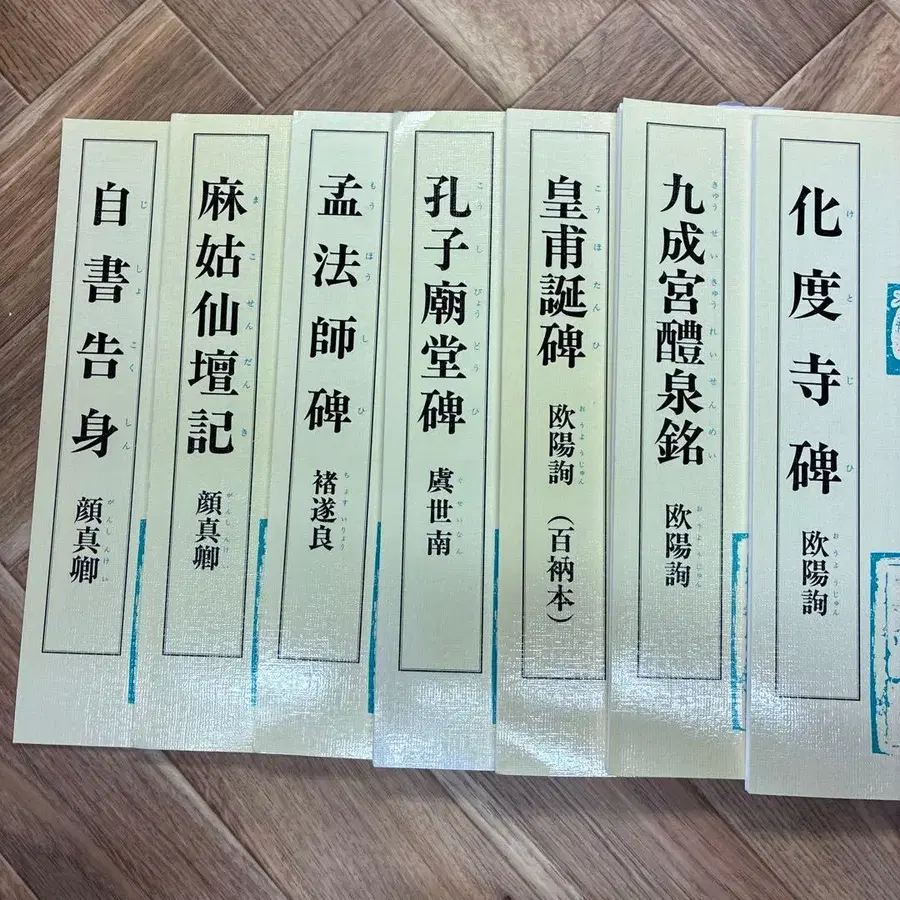 化度寺碑 欧陽詢
けとじひ おうようじゅん
九成宮醴泉銘 欧陽詢
きゅうせいきゅうれいせんめい おうようじゅん
皇甫誕碑 欧陽詢（百衲本）
こうほたんひ おうようじゅん
孔子廟堂碑 虞世南
こうしびょうどうひ ぐせいなん
孟法師碑 褚遂良
もうほうしひ ちょすいりょう
麻姑仙壇記 顔真卿
まこせんだんき がんしんけい
自書告身 顔真卿
じしょこくしん がんしんけい